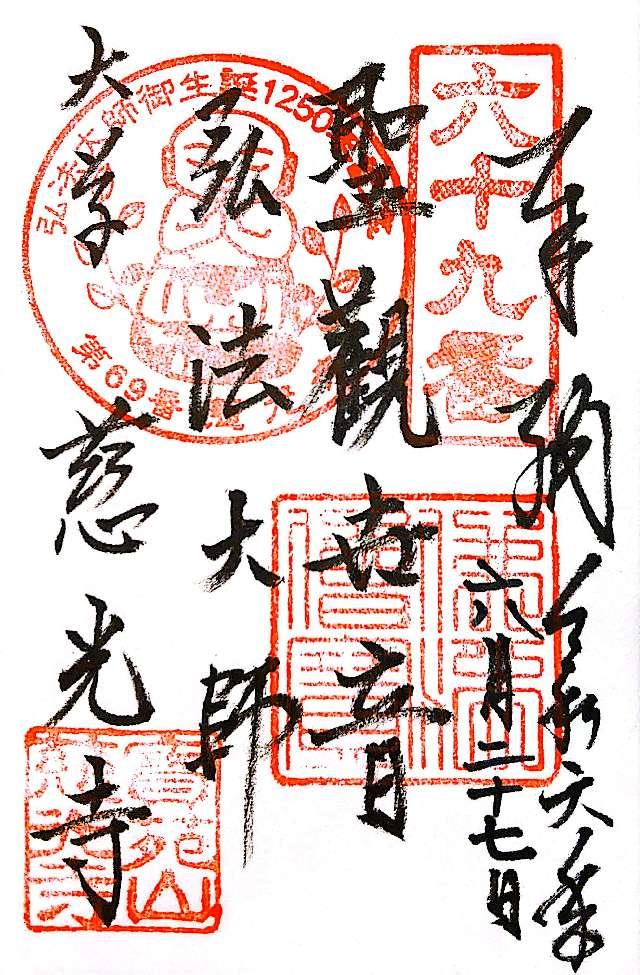 奉納
令和六年
六月二十七日
六十九番
聖觀世音
弘法大師
大草 慈光寺
弘法大師御生誕1250年
第69番